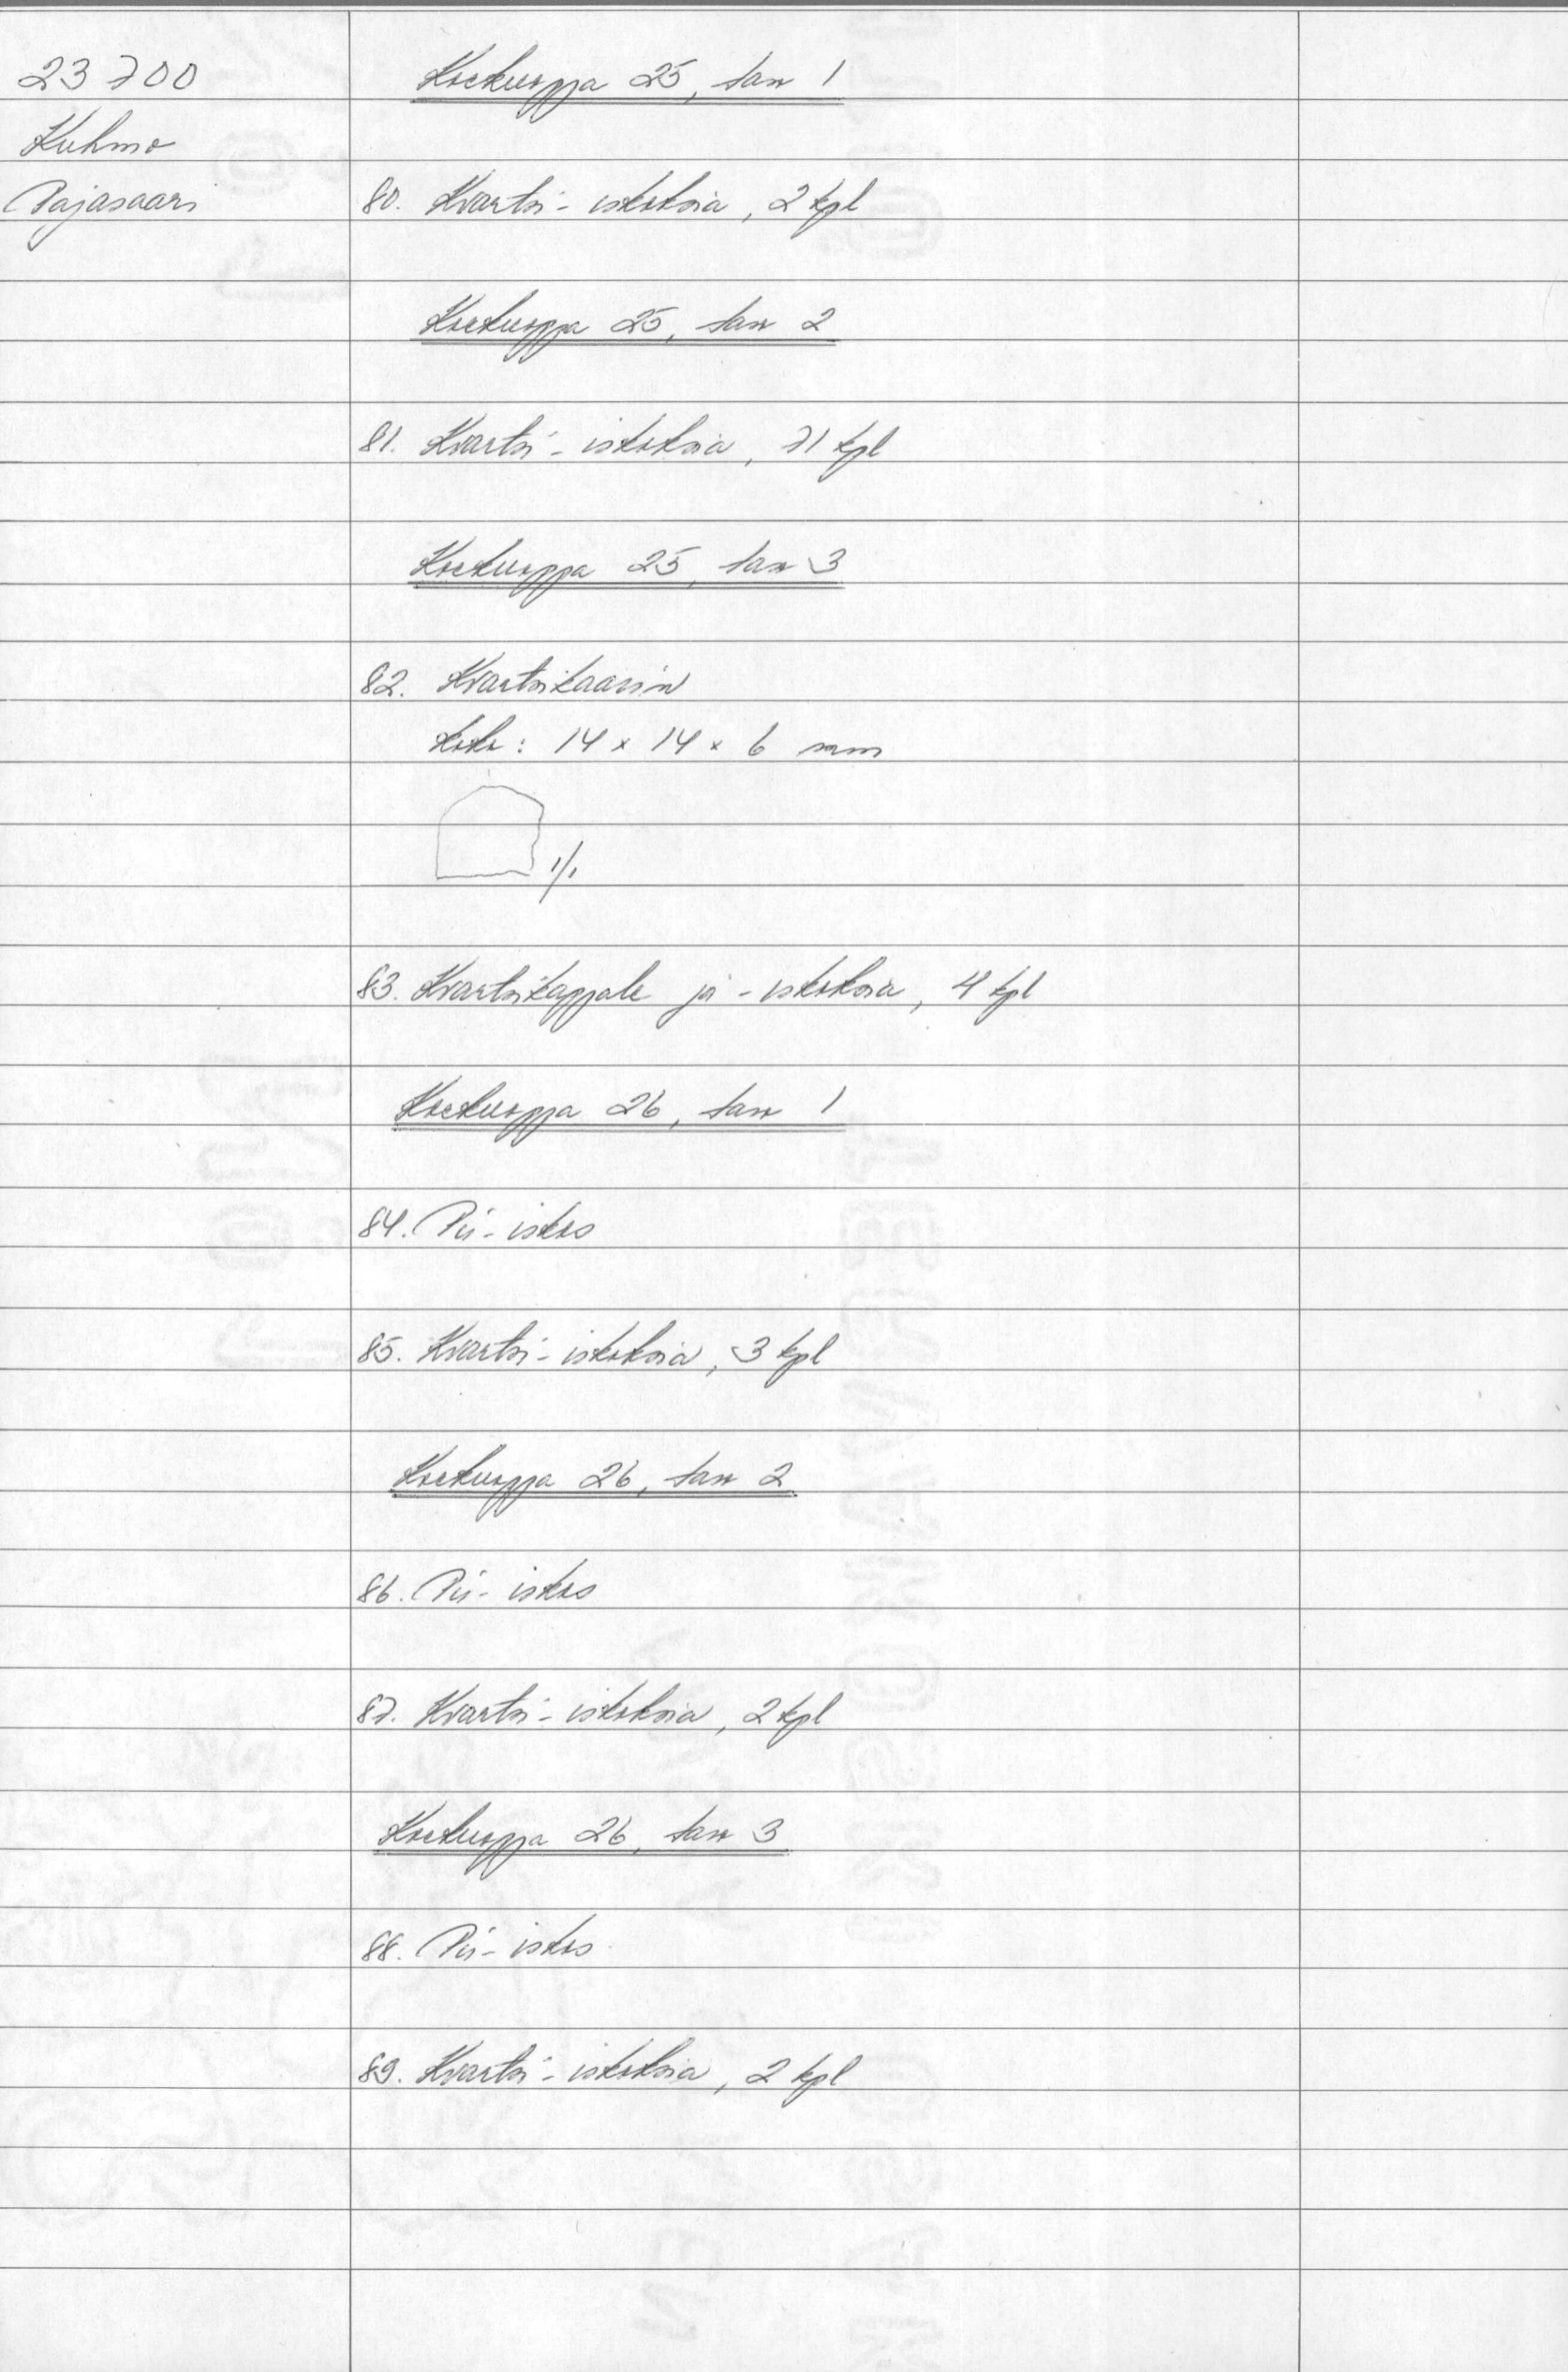 23 700
Kuhmo
Pajasaari
Koekuoppa 25, taso 1
80. Kvartsi-iskoksia, 2 kpl
Koekuoppa 25, taso 2
81. Kvartsi-iskoksia, 71 kpl
Koekuoppa 25, taso 3
82. Kvartsikaavin
koko: 14 x 14 x 6 mm
1/1
83. Kvartsikappale ja -iskoksia, 4 kpl
Koekuoppa 26, taso 1
84. Pii-iskos
85. Kvartsi-iskoksia, 3 kpl
Koekuoppa 26, taso 2
86. Pii-iskos
87. Kvartsi-iskoksia, 2 kpl
Koekuoppa 26, taso 3
88. Pii-iskos
89. Kvartsi-iskoksia, 2 kpl